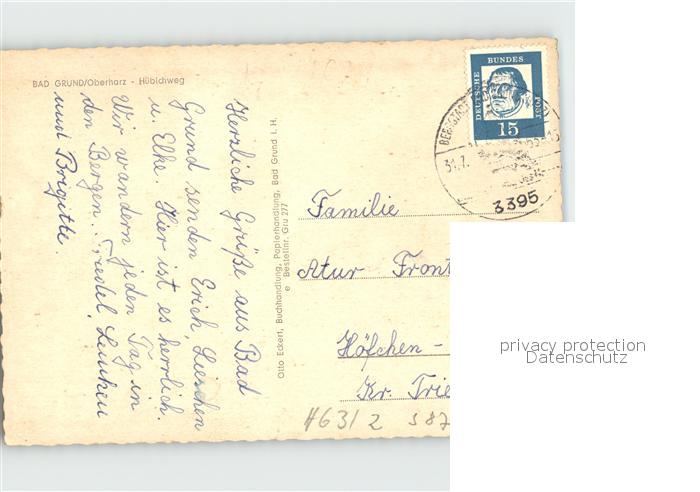 BAD GRUND/Oberharz - Hübichweg
Herzliche Grüße aus Bad
Grund senden Erich, Lieschen
u. Elke. Hier ist es herrlich.
Wir wandern jeden Tag in
den Bergen.
und Brigitte.
Otto Eckert, Buchhandlung, Papierhandlung, Bad Grund i. H.
e Bestellnr. Gru 277
DEUTSCHE BUNDES POST
15
31.7.
3395
Familie
Atur Front
Höfchen -
Kr. Trie
H631 2 587
privacy protection
Datenschutz